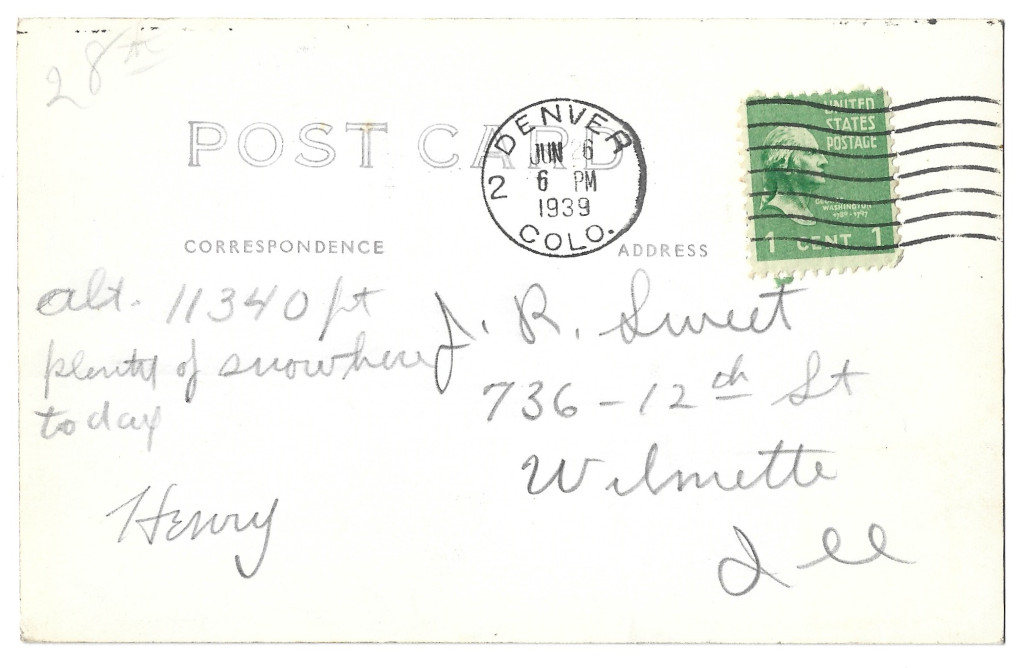 28th
POST CARD
DENVER
JUN 6
6 PM
1939
2
COLO.
UNITED
STATES
POSTAGE
GEORGE
WASHINGTON
1789-1797
1 CENT 1
CORRESPONDENCE
ADDRESS
alt. 11340 ft
plenty of snow here
today
Henry
J. R. Sweet
736-12th St
Wilmette
Ill